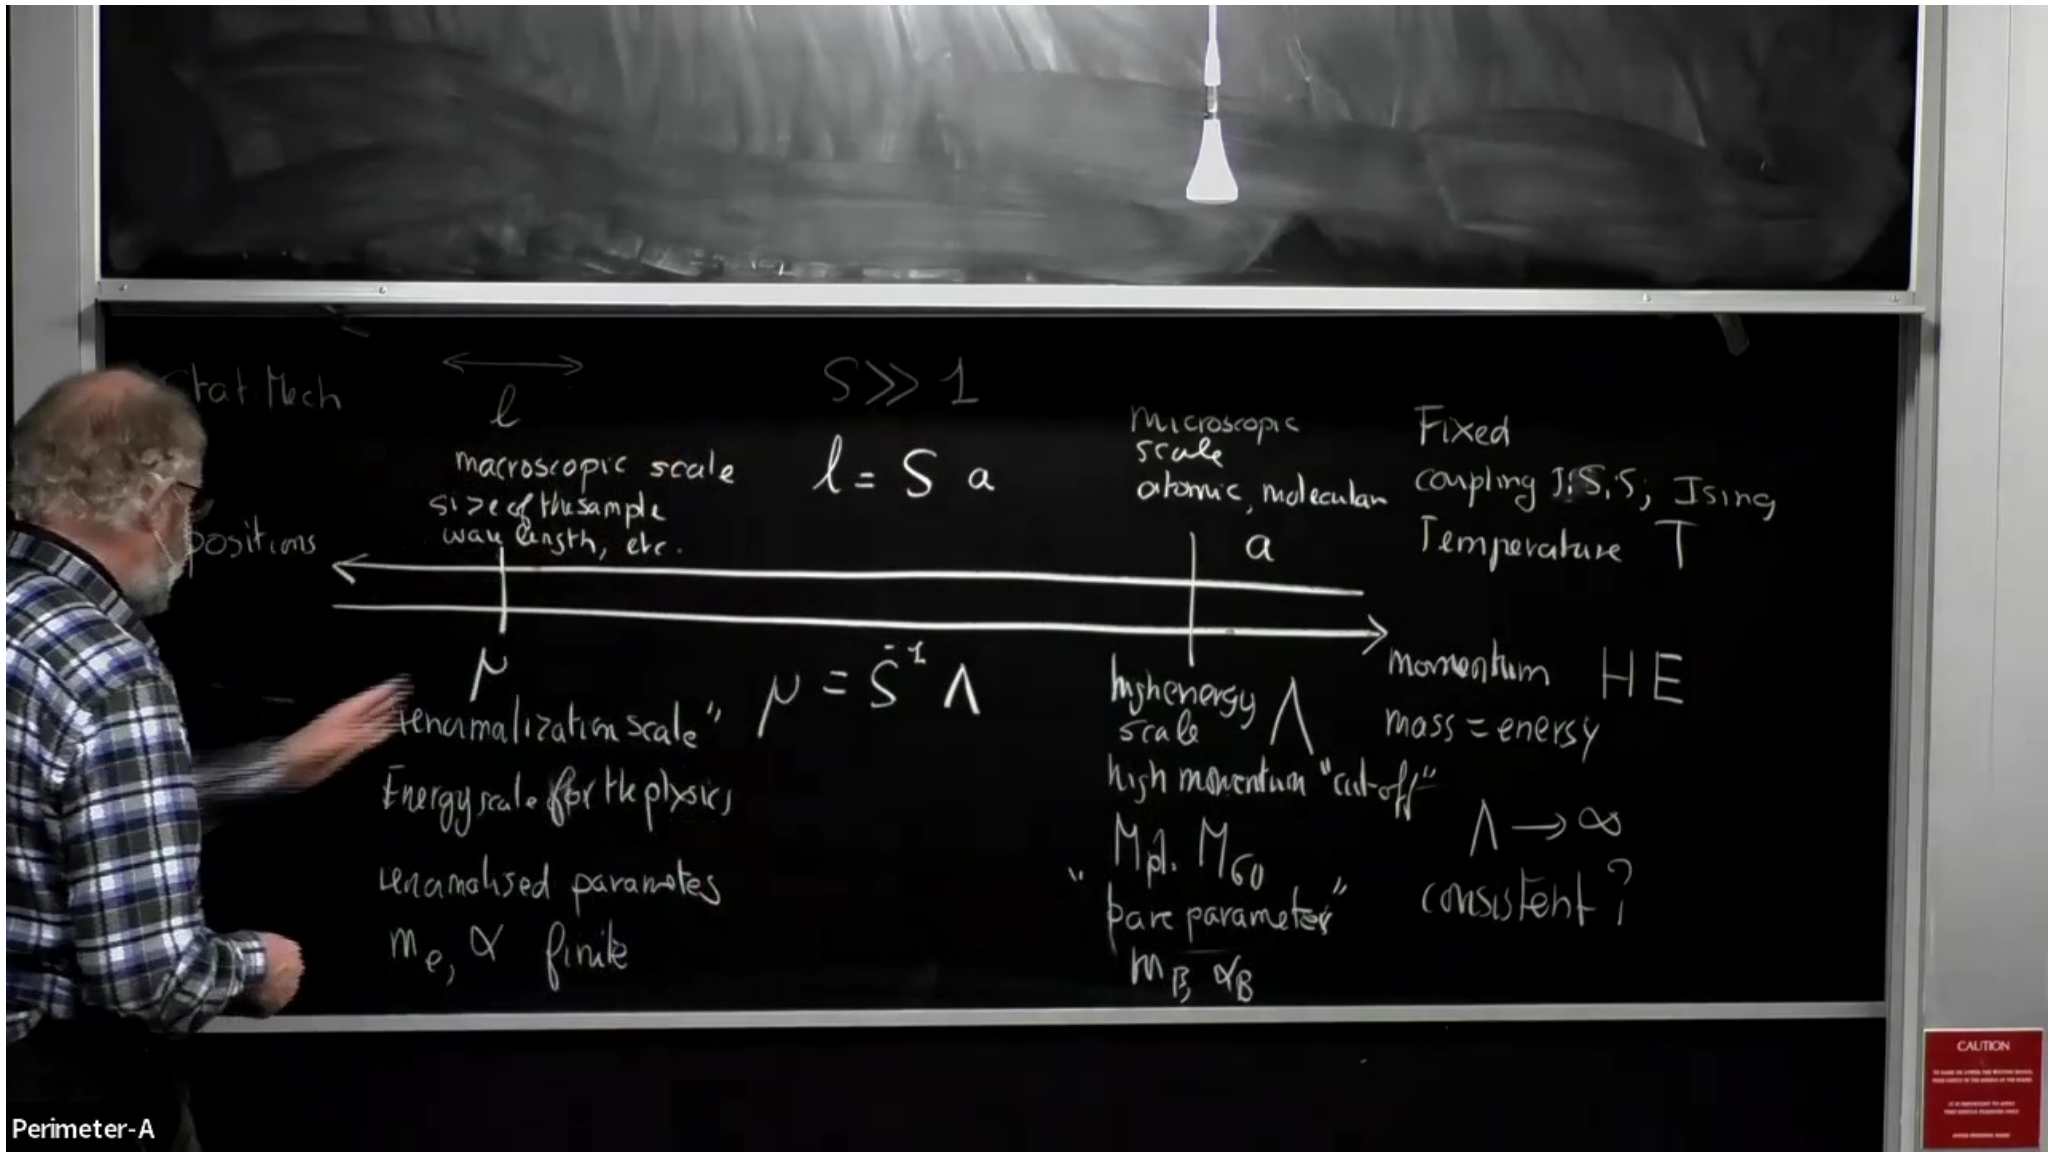 Stat. Mech
l
S >> 1
macroscopic scale
size of the sample
wave length, etc.
l = S a
microscopic
scale
atomic, molecular
a
Fixed
coupling J: SiSj Ising
Temperature T
positions
μ
renormalization scale"
Energy scale for the physics
renormalised parameters
me, α finite
μ = S⁻¹ Λ
high energy
scale Λ
high momentum "cut-off"
Mpl. MGU
"bare parameter"
mB, αB
momentum HE
mass = energy
Λ → ∞
consistent?
CAUTION
Perimeter-A